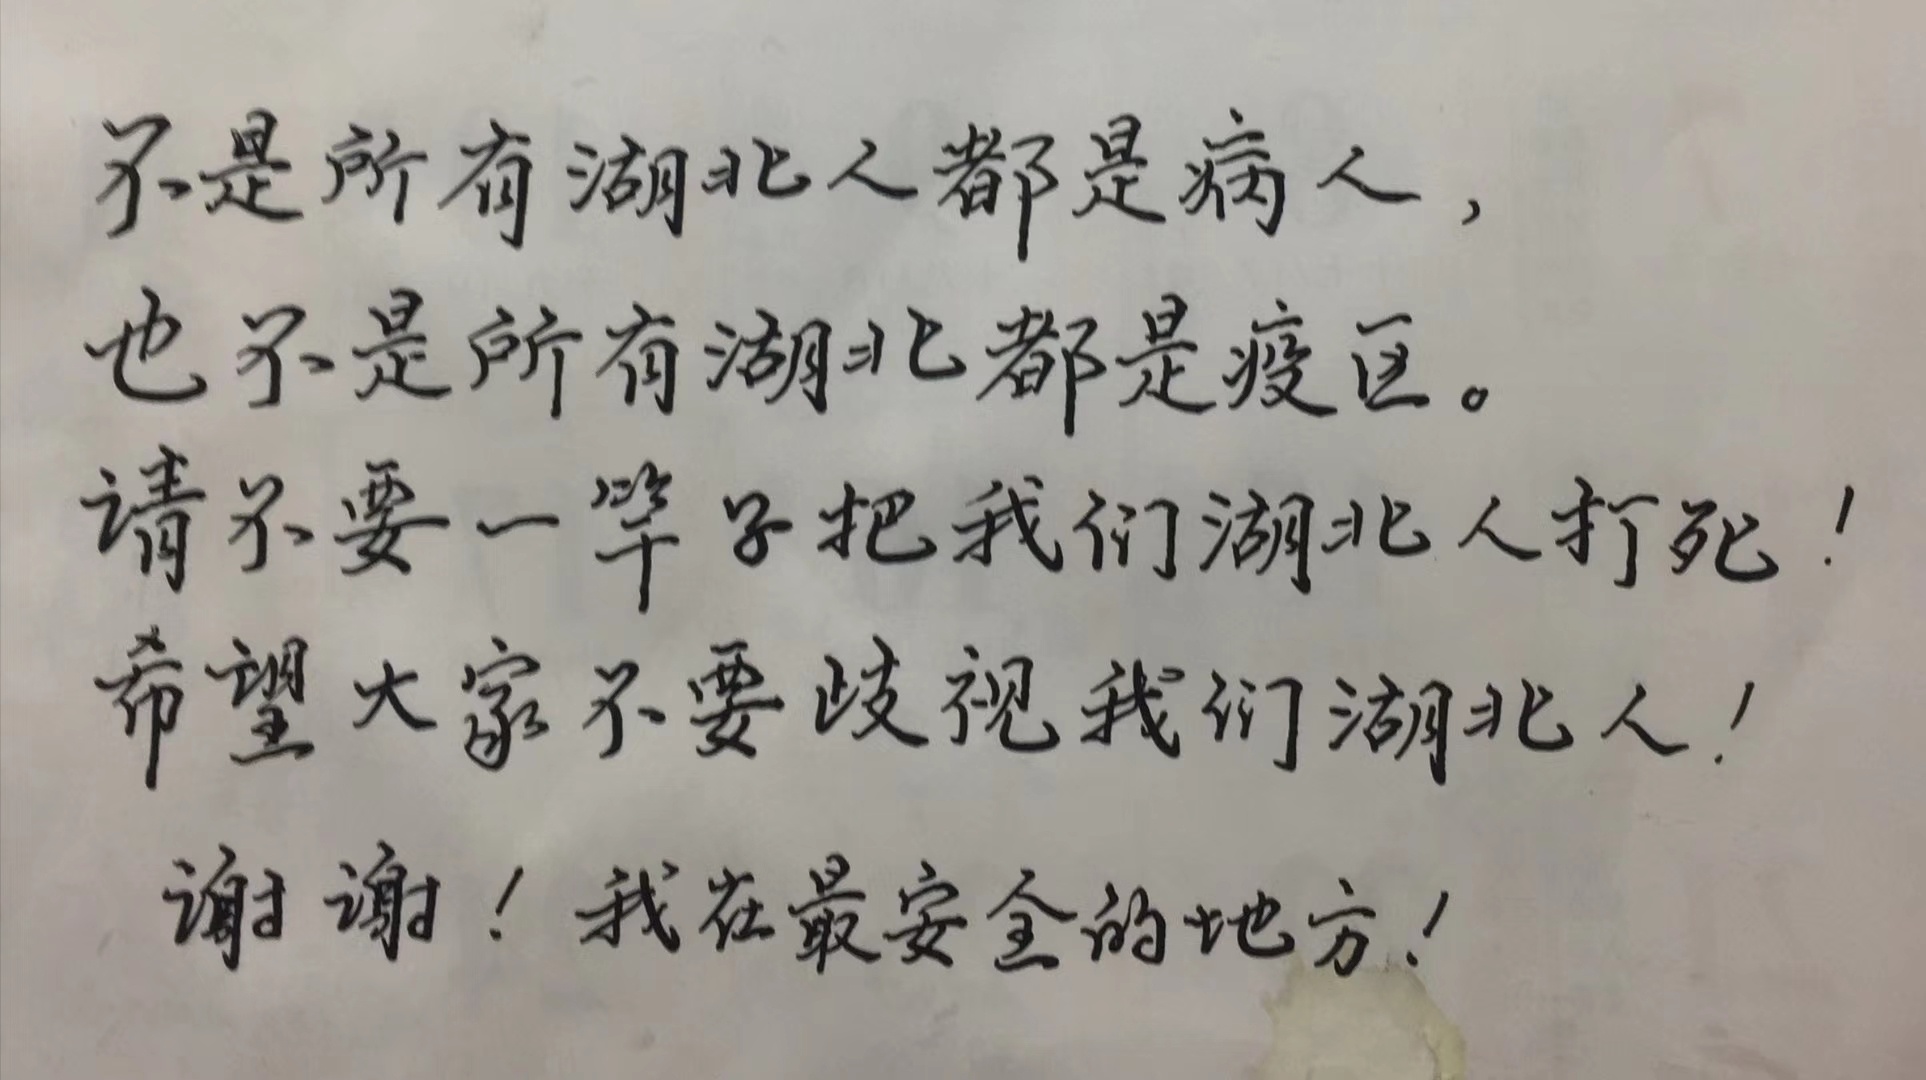 不是所有湖北人都是病人，
也不是所有湖北都是疫区。
请不要一竿子把我们湖北人打死！
希望大家不要歧视我们湖北人！
谢谢！我在最安全的地方！